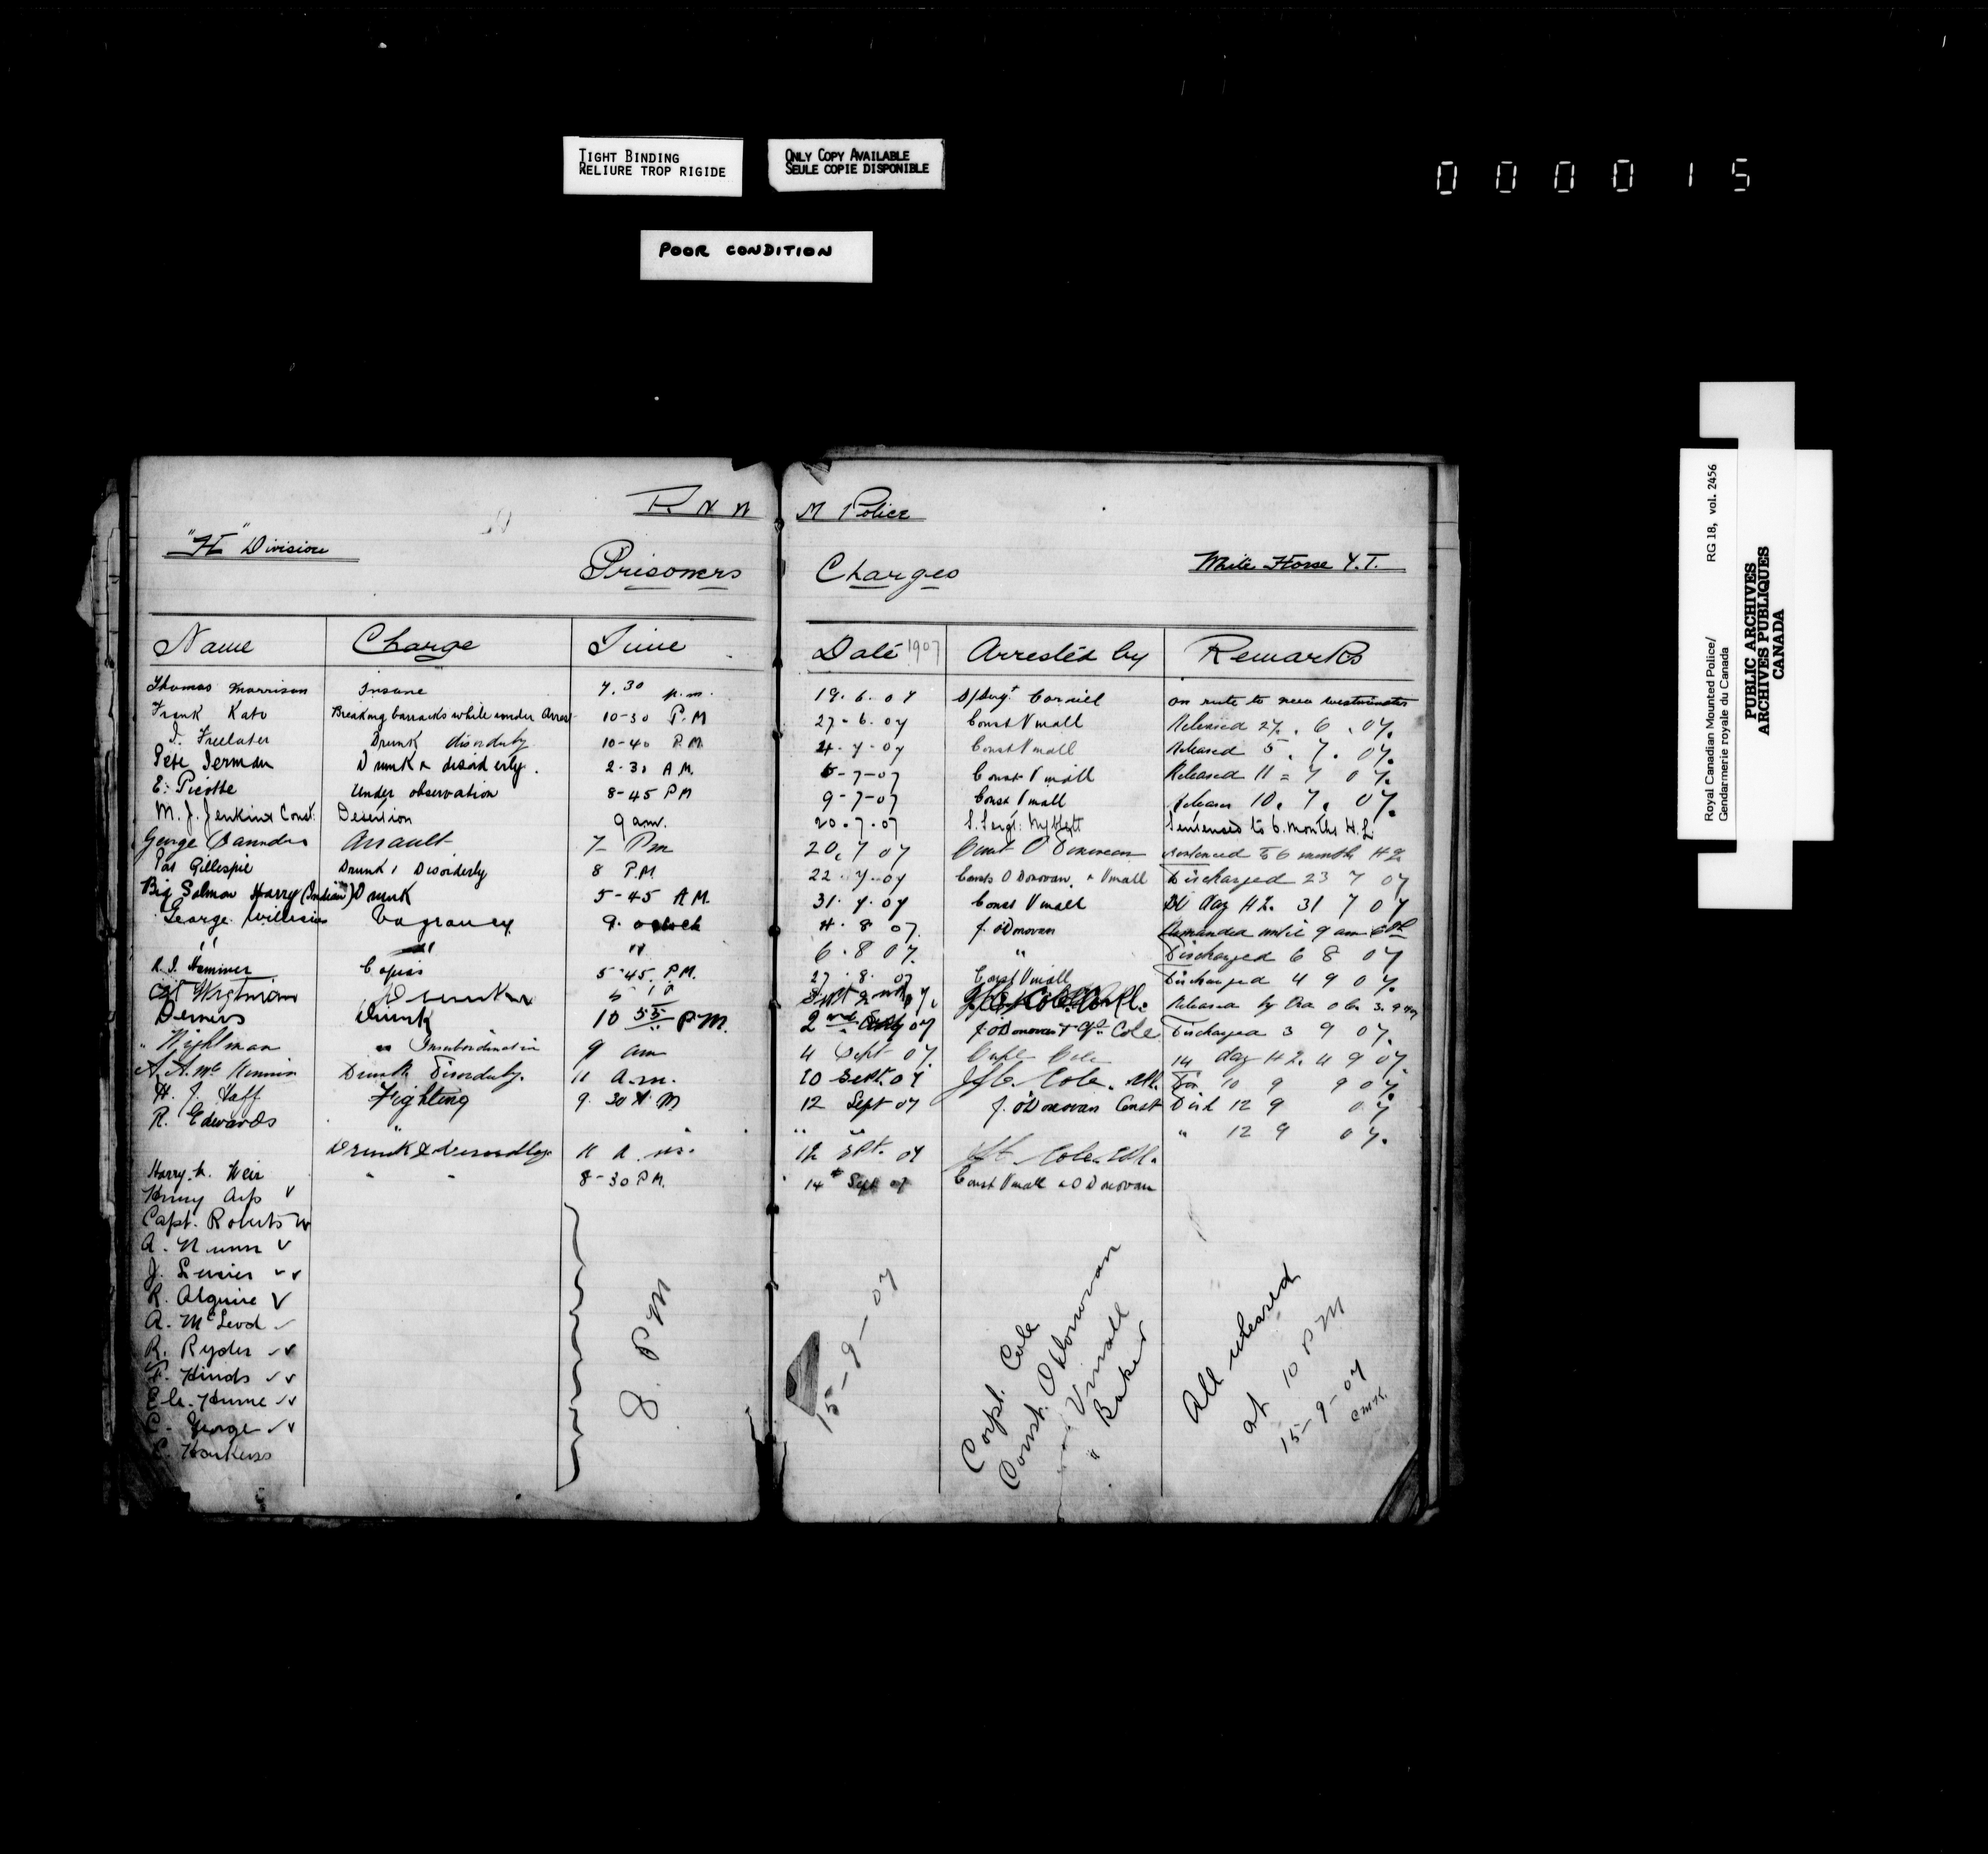 TIGHT BINDING
RELIURE TROP RIGIDE
ONLY COPY AVAILABLE
SEULE COPIE DISPONIBLE
0 0 0 0 1 5
POOR CONDITION
Royal Canadian Mounted Police/ RG 18, vol. 2456
Gendarmerie royale du Canada
PUBLIC ARCHIVES
ARCHIVES PUBLIQUES
CANADA
R N W M Police
"H" Division
Prisoners Charges White Horse Y.T.
Name Charge Time Date 1907 Arrested by Remarks
Thomas Morrison Insane 7.30 p.m. 19.6.07 on route to new westminster
Frank Breaking barracks while under Arrest 10-30 P.M 27-6.07 Const Vmall Released 27.6.07.
Drunk disorderly 10-40 P.M. 4.7.07 Const Vmall Released 5.7.07.
Pete Drunk & disorderly. 2-30 A.M. 7-07 Const Vmall Released 11 = 7 07.
E. Picotte Under observation 8-45 PM 9-7-07 Const Vmall 10.7.07.
M. J. Jenkins Const. Desertion 9 am. 20.7.07 Sentenced to 6 months H.L.
George Assault 7 Pm 20.7 07 Const O Donovan sentenced to 6 months H L
Pat Gillespie Drunk, Disorderly 8 P.M. 22.7.07 Consts O Donovan & Vmall Discharged 23 7 07
Big Salmon Harry (Indian) Drunk 5-45 A.M. 31.7.07 Const Vmall day H L. 31 7 07
George Vagrancy 9. oclock 4.8 07. J. O'Donovan Remanded until 9 am
" " 6.8 07. " Discharged 6 8 07
5.45. P.M. 27.8.07 Const Vmall Discharged 4 9 07.
Released by
Demers Drunk 10 55 P.M. 2nd 07 J. O'Donovan Cole Discharged 3 9 07.
" Wightman Insubordination 9 am 4 Sept 07. Cole 14 day H L. 4 9 07.
Drunk Disorderly. 11 a.m. 10 Sept. 07 Cole. 10 9 07.
H. J. Haff Fighting 9.30 12 Sept 07 J. O'Donovan Const Disd 12 9 07
R. Edwards " " " " 12 9 07.
Drunk & disorderly 11 a.m. 12 Sept. 07 Cole
Harry. Weir " - 8-30 P.M. 14 Sept 07 Const Vmall & O Donovan
Henry v
Capt. Roberts
A. Nunn v
J. v v
R. Alguire v
A. McLeod
R. Ryder
F. Hinds
Hume
C. George
8 PM
15-9-07
Corpl. Cole
Const. O Donovan
Vmall
" Baker
All released
at 10 PM
15-9-07